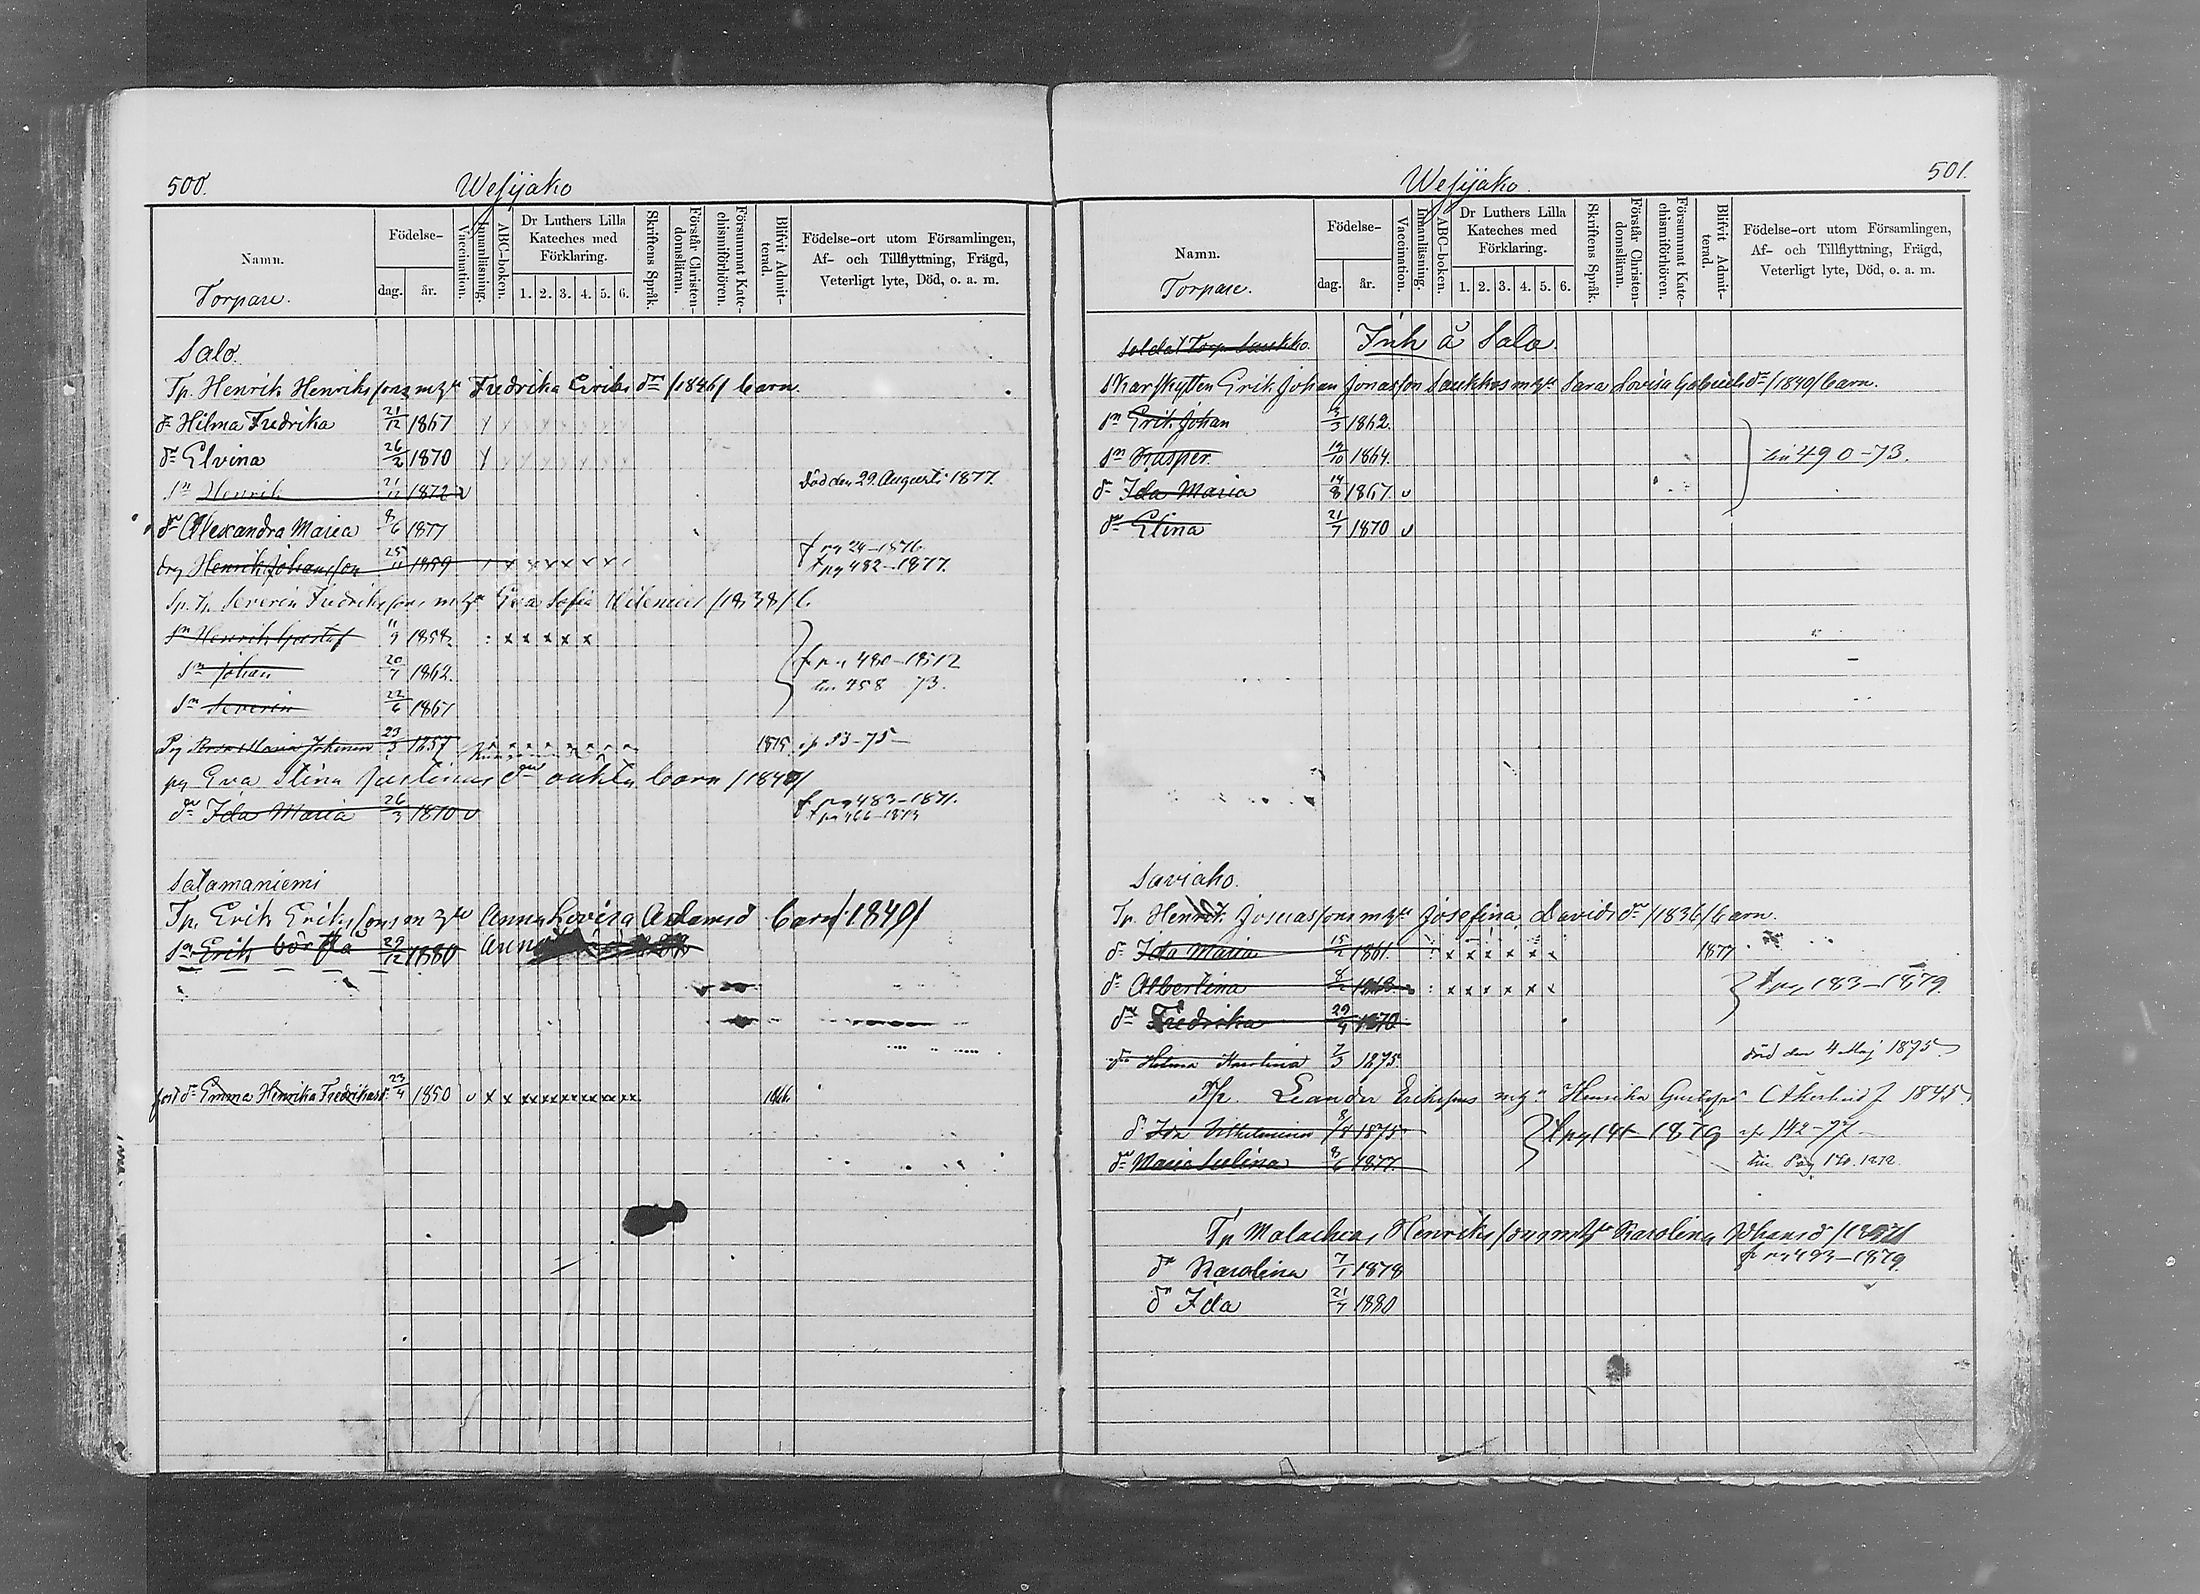 500.
Wesijako
Namn.
Torpare.
Födelse-
dag.
år.
Vaccination.
Innanläsning.
ABC-boken.
Dr Luthers Lilla
Kateches med
Förklaring.
1. 2. 3. 4. 5. 6.
Skriftens Språk.
Förstår Christen-
domsläran.
Försummat Kate-
chismiförhören.
Blifvit Admit-
terad.
Födelse-ort utom Församlingen,
Af- och Tillflyttning, Frägd,
Veterligt lyte, Död, o. a. m.
Salo.
Tp. Henrik Henriksons Fredrika Eriks dr /1846/ barn.
dr Hilma Fredrika 21/12 1867
dr Elvina 26/2 1870
sn Henrik 1872 v Död den 29 Augusti 1877.
dr Alexandra Maria 8/6 1877
drg Henrik Johansson 25/11 1859 x x x x x x
f pg 24-1876
t pg 482-1877.
Severin Fredrikssons Eva Sofia /1838/ b.
sn Henrik Gustaf 11/9 1858. : x x x x x
sn Johan 1862.
f pg 480-1872
till 258 73.
sn Severin 22/6 1867
Pig Maria 23/3 1857 1875
pg Eva Stina Justinus dr oäkta barn
dr Ida Maria 26/3 1870 v
f pg 483-1871.
Salamaniemi
Tp. Erik Erikssons Anna Lovisa Adamsd barn /1849/
sn Erik 29/12 1880 Anna
dr Emma Henrika Fredriksd. 23/4 1850 v x x x x x x x x x 1866.
501.
Wesijako.
Namn.
Torpare.
Födelse-
dag.
år.
Vaccination.
Innanläsning.
ABC-boken.
Dr Luthers Lilla
Kateches med
Förklaring.
1. 2. 3. 4. 5. 6.
Skriftens Språk.
Förstår Christen-
domsläran.
Försummat Kate-
chismiförhören.
Blifvit Admit-
terad.
Födelse-ort utom Församlingen,
Af- och Tillflyttning, Frägd,
Veterligt lyte, Död, o. a. m.
Soldat Torp Saukko. Inh å Salo.
Skarpskytten Erik Johan Jonasson Saukkos Sara Lovisa Gabriels dr /1840/ barn.
sn Erik Johan 1862.
sn Kasper 19/10 1864. till 490-73.
dr Ida Maria 14/8 1867. v
dr Elina 21/7 1870 v
Saviaho.
Tp. Henrik Josuassons Josefina Davids dr /1836/ barn.
dr Ida Maria 15/2 1861. : x x x x x 1877
dr Albertina 8/2 : x x x x x
t pg 183-1879.
dr Fredrika 29/4 1870
Karolina 7/3 1875. död den 4 Maj 1875
Tp. Leander Erikssons Henrika 1845.
dr Ida Vilhelmina 1875 1879 142-77
dr Maria 8/6 1877.
Tp Malachias Henrikssons Karolina
f pg 493-1879.
dr Karolina 7/1 1878
dr Ida 21/7 1880